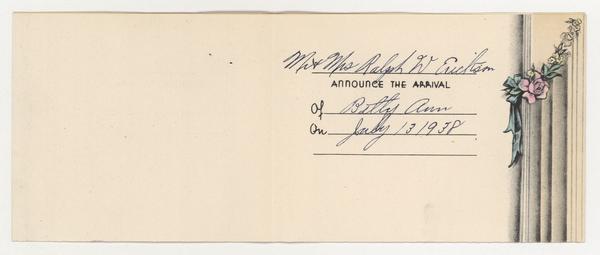 Mr & Mrs Ralph W Erickson
ANNOUNCE THE ARRIVAL
Of Betty Ann
On July 13 1938